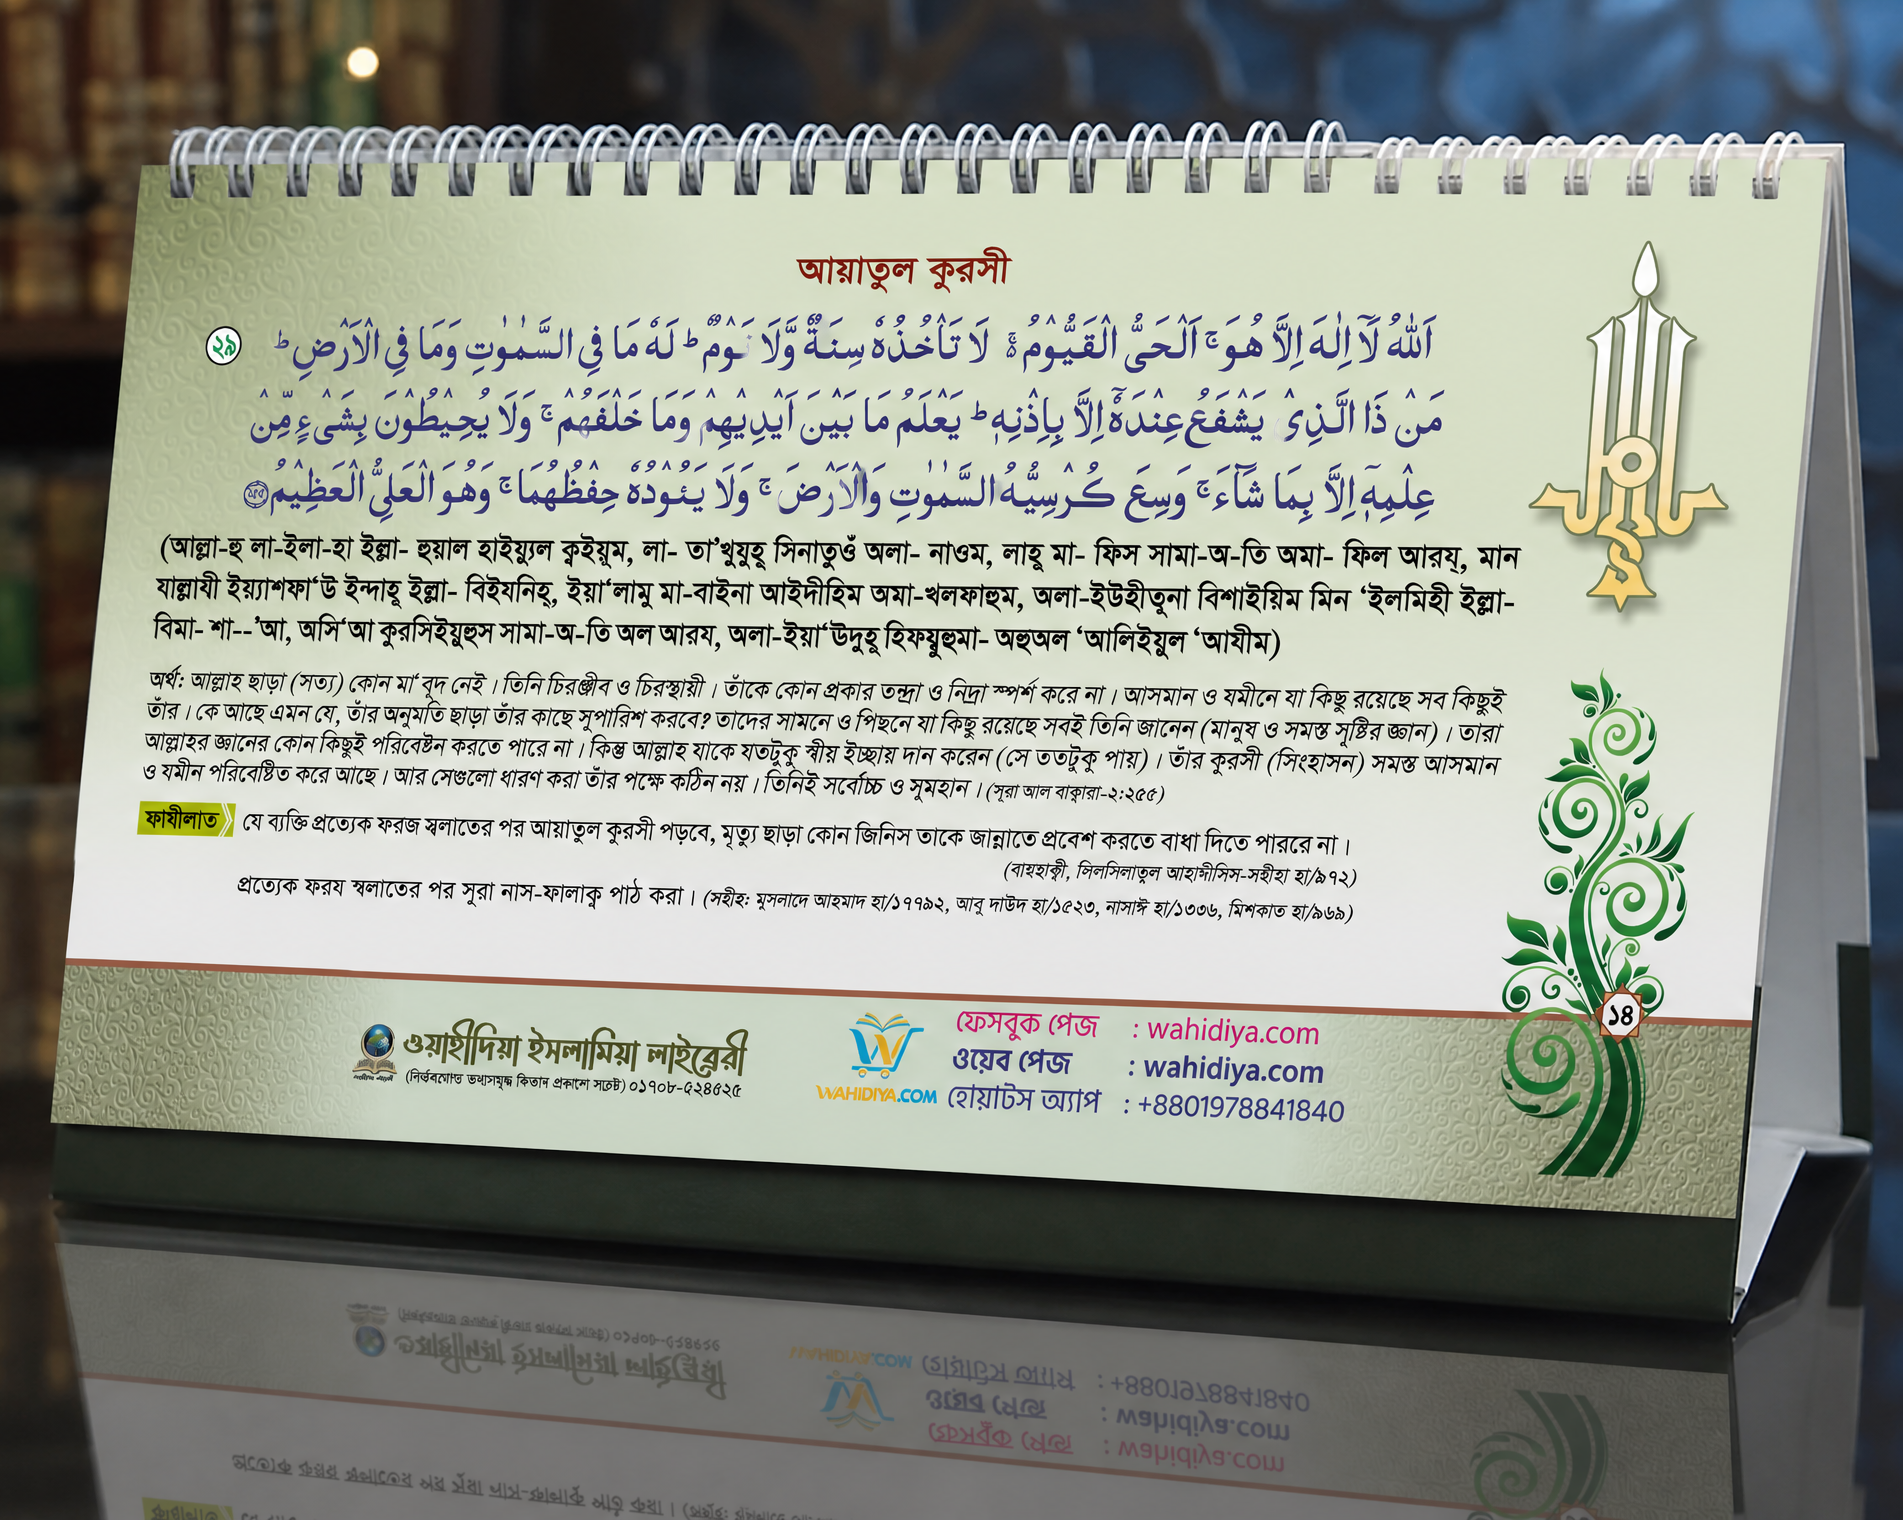 আয়াতুল কুরসী
২৯
اَللّٰهُ لَآ اِلٰهَ اِلَّا هُوَ ۚ اَلْحَىُّ الْقَيُّوْمُ ۚ لَا تَاْخُذُهٗ سِنَةٌ وَّلَا نَوْمٌ ؕ لَهٗ مَا فِى السَّمٰوٰتِ وَمَا فِى الْاَرْضِ ؕ
مَنْ ذَا الَّذِىْ يَشْفَعُ عِنْدَهٗۤ اِلَّا بِاِذْنِهٖ ؕ يَعْلَمُ مَا بَيْنَ اَيْدِيْهِمْ وَمَا خَلْفَهُمْ ۚ وَلَا يُحِيْطُوْنَ بِشَىْءٍ مِّنْ
عِلْمِهٖۤ اِلَّا بِمَا شَآءَ ۚ وَسِعَ كُرْسِيُّهُ السَّمٰوٰتِ وَالْاَرْضَ ۚ وَلَا يَـُٔوْدُهٗ حِفْظُهُمَا ۚ وَهُوَ الْعَلِىُّ الْعَظِيْمُ
(আল্লা-হু লা-ইলা-হা ইল্লা- হুয়াল হাইয়্যুল ক্বইয়ূম, লা- তা’খুযুহূ সিনাতুওঁ অলা- নাওম, লাহূ মা- ফিস সামা-অ-তি অমা- ফিল আরয্, মান
যাল্লাযী ইয়্যাশফা‘উ ইন্দাহূ ইল্লা- বিইযনিহ্, ইয়া‘লামু মা-বাইনা আইদীহিম অমা-খলফাহুম, অলা-ইউহীতূনা বিশাইয়িম মিন ‘ইলমিহী ইল্লা-
বিমা- শা--’আ, অসি‘আ কুরসিইয়ুহুস সামা-অ-তি অল আরয, অলা-ইয়া‘উদুহূ হিফযুহুমা- অহুঅল ‘আলিইয়ুল ‘আযীম)
অর্থ: আল্লাহ ছাড়া (সত্য) কোন মা‘বূদ নেই। তিনি চিরঞ্জীব ও চিরস্থায়ী। তাঁকে কোন প্রকার তন্দ্রা ও নিদ্রা স্পর্শ করে না। আসমান ও যমীনে যা কিছু রয়েছে সব কিছুই
তাঁর। কে আছে এমন যে, তাঁর অনুমতি ছাড়া তাঁর কাছে সুপারিশ করবে? তাদের সামনে ও পিছনে যা কিছু রয়েছে সবই তিনি জানেন (মানুষ ও সমস্ত সৃষ্টির জ্ঞান)। তারা
আল্লাহর জ্ঞানের কোন কিছুই পরিবেষ্টন করতে পারে না। কিন্তু আল্লাহ যাকে যতটুকু স্বীয় ইচ্ছায় দান করেন (সে ততটুকু পায়)। তাঁর কুরসী (সিংহাসন) সমস্ত আসমান
ও যমীন পরিবেষ্টিত করে আছে। আর সেগুলো ধারণ করা তাঁর পক্ষে কঠিন নয়। তিনিই সর্বোচ্চ ও সুমহান। (সূরা আল বাক্বারা-২:২৫৫)
ফাযীলাত যে ব্যক্তি প্রত্যেক ফরজ স্বলাতের পর আয়াতুল কুরসী পড়বে, মৃত্যু ছাড়া কোন জিনিস তাকে জান্নাতে প্রবেশ করতে বাধা দিতে পাররে না।
(বায়হাক্বী, সিলসিলাতুল সহীহা হা/৯৭২)
প্রত্যেক ফরয স্বলাতের পর সুরা নাস-ফালাক্ব পাঠ করা। (সহীহ: মুসনাদে আহমাদ হা/১৭৭৯২, আবু দাউদ হা/১৫২৩, নাসাঈ হা/১৩৩৬, মিশকাত হা/৯৬৯)
১৪
ওয়াহীদিয়া ইসলামিয়া লাইব্রেরী
০১৭০৮-৫২৪৬২৫
WAHIDIYA.COM
ফেসবুক পেজ : wahidiya.com
ওয়েব পেজ : wahidiya.com
হোয়াটস অ্যাপ : +8801978841840